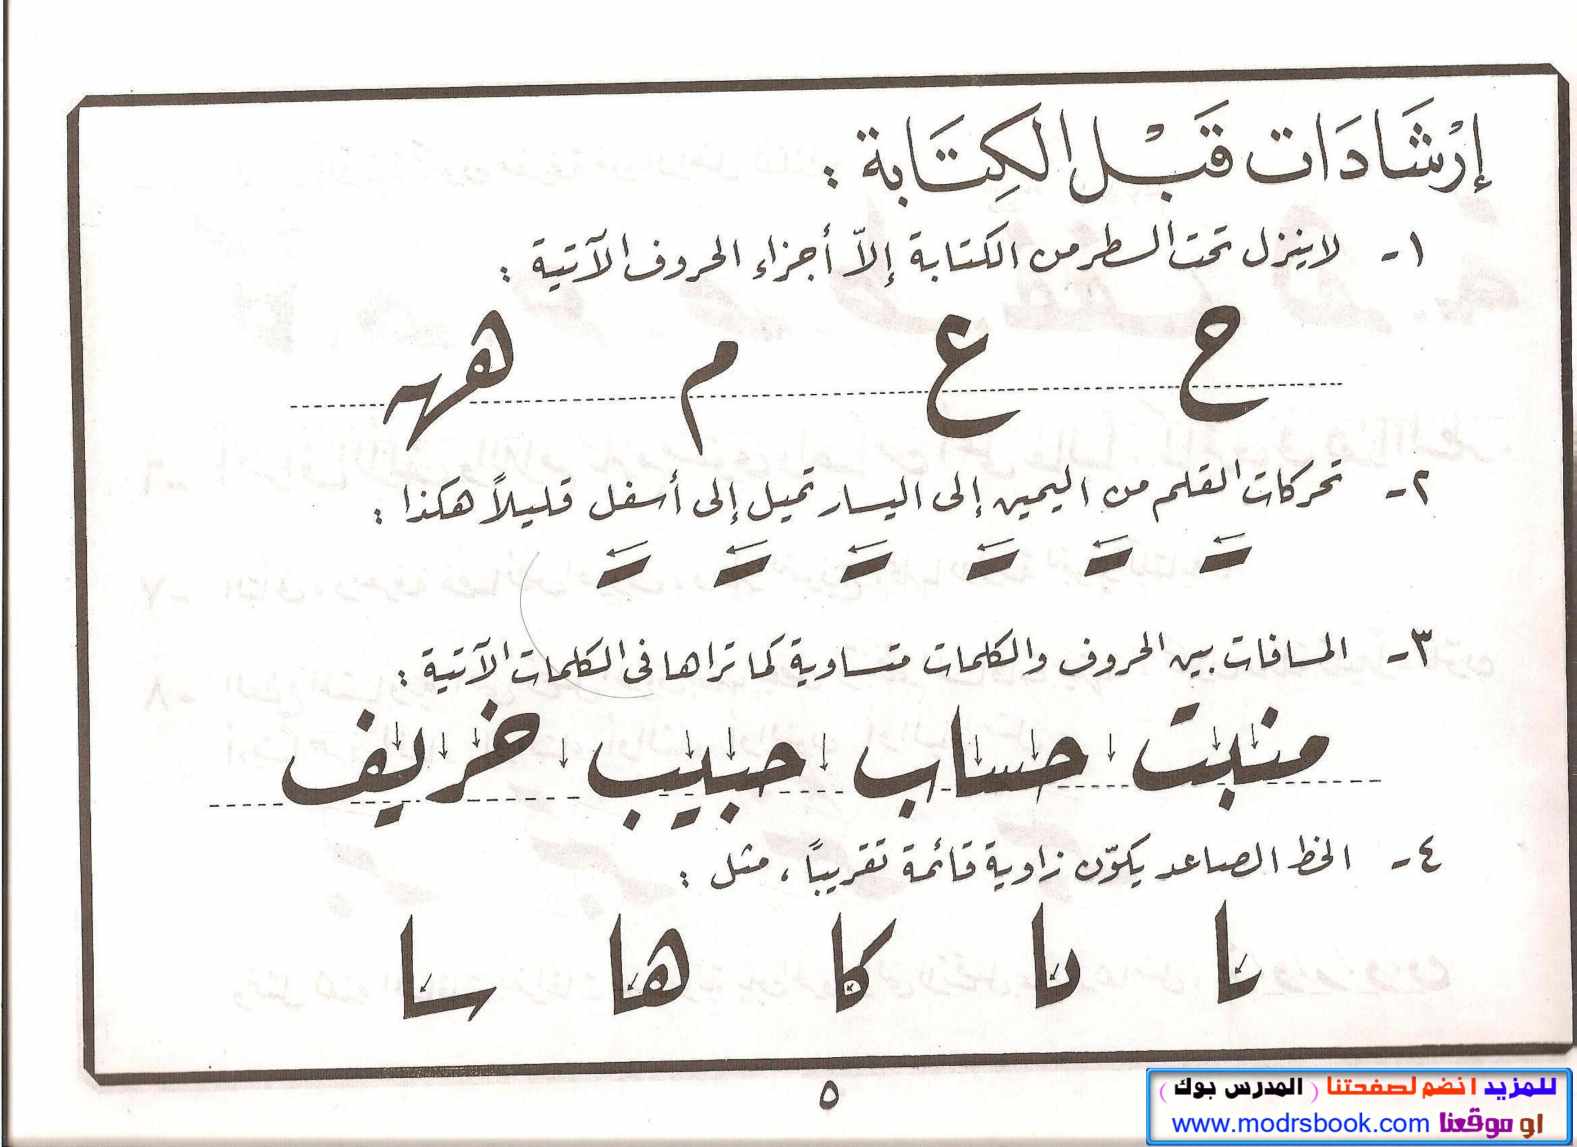 إِرْشَادَات قَبْل الكِتَابة :
١- لاينزل تحت السطر من الكتابة إلاّ أجزاء الحروف الآتية :
ح ع م هه
٢- تحركات القلم من اليمين إلى اليسار تميل إلى أسفل قليلاً هكذا :
٣- المسافات بين الحروف والكلمات متساوية كما تراها فى الكلمات الآتية :
منبت حساب حبيب خريف
٤- الخط الصاعد يكوّن زاوية قائمة تقريباً ، مثل :
كا ها سا
٥
للمزيد انضم لصفحتنا ( المدرس بوك )
او موقعنا www.modrsbook.com